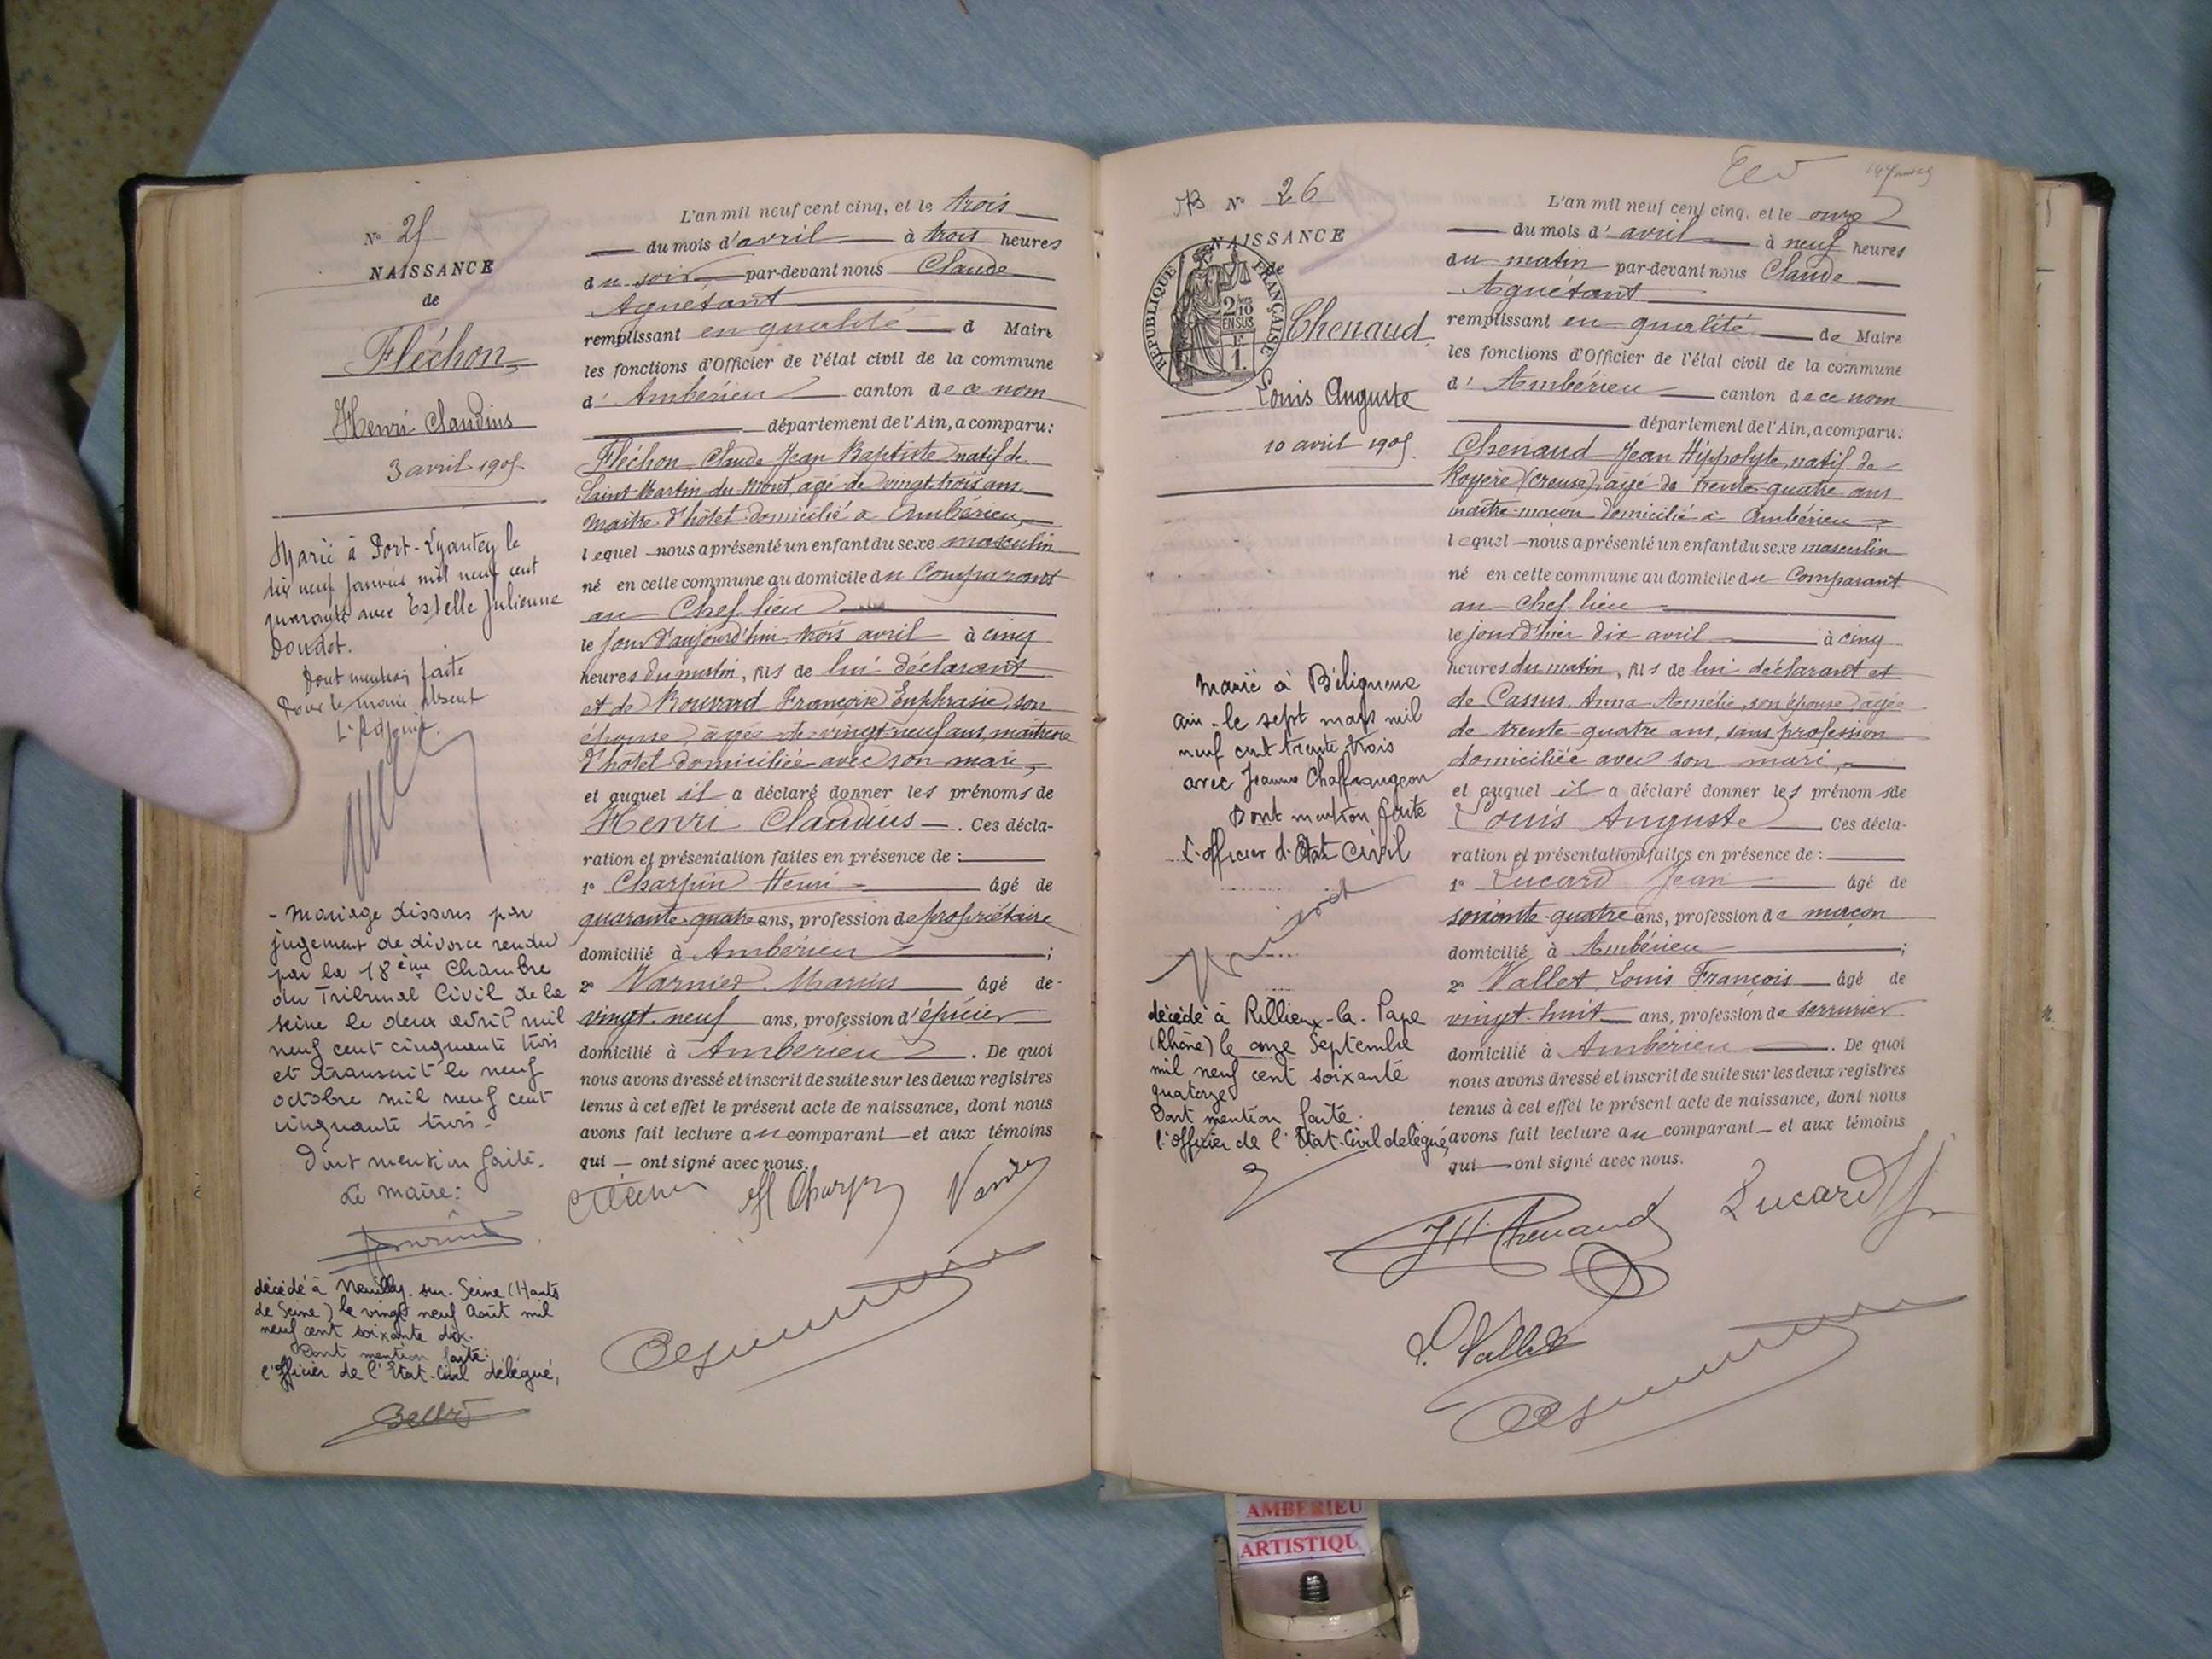 N° 25
NAISSANCE
de
Fléchon
Henri Claudius
3 avril 1905.
Marié à Port-Lyautey le
dix neuf Janvier mil neuf cent
quarante avec Estelle Julienne
Doudot.
Dont mention faite
Pour le maire absent
L'Adjoint.
- Mariage dissous par
jugement de divorce rendu
par la 18ème Chambre
du Tribunal Civil de la
Seine le deux avril mil
neuf cent cinquante trois
et transcrit le neuf
octobre mil neuf cent
cinquante trois.
Dont mention faite.
Le Maire:
décédé à Neuilly-sur-Seine (Hauts
de Seine) le vingt neuf Août mil
neuf cent soixante dix.
Dont mention faite:
l'officier de l'Etat-Civil délégué,
L'an mil neuf cent cinq, et le trois
du mois d'avril à trois heures
du soir par-devant nous Claude
Aguétant
remplissant en qualité d Maire
les fonctions d'Officier de l'état civil de la commune
d' Ambérieu canton de ce nom
département de l'Ain, a comparu:
Fléchon Claude Jean Baptiste natif de
Saint Martin du Mont, agé de vingt-trois ans
maître d'hôtel domicilié à Ambérieu,
lequel nous a présenté un enfant du sexe masculin
né en cette commune au domicile du Comparant
au Chef-lieu
le jour d'aujourd'hui trois avril à cinq
heures du matin, fils de lui déclarant
et de Bouvard Françoise Euphrasie, son
épouse, âgée de vingt neuf ans, maîtresse
d'hôtel domiciliée avec son mari,
et auquel il a déclaré donner les prénoms de
Henri Claudius . Ces décla-
ration et présentation faites en présence de :
1° Charpin Henri âgé de
quarante-quatre ans, profession de propriétaire
domicilié à Ambérieu ;
2° Varnier Marius âgé de
vingt-neuf ans, profession d'épicier
domicilié à Ambérieu . De quoi
nous avons dressé et inscrit de suite sur les deux registres
tenus à cet effet le présent acte de naissance, dont nous
avons fait lecture au comparant et aux témoins
qui ont signé avec nous.
H Charpin
N° 26
NAISSANCE
de
RÉPUBLIQUE FRANÇAISE
2/10
EN SUS
F.
1.
Chenaud
Louis Auguste
10 avril 1905.
Marié à Béligneux
Ain - le sept mars mil
neuf cent trente trois
avec Jeanne Chaffangeon
Dont mention faite
L'officier d'Etat Civil
décédé à Rillieux-la-Pape
(Rhône) le onze Septembre
mil neuf cent soixante
quatorze
Dont mention faite.
l'officier de l'Etat-Civil délégué,
L'an mil neuf cent cinq, et le onze
du mois d'avril à neuf heures
du matin par-devant nous Claude
Aguétant
remplissant en qualité de Maire
les fonctions d'Officier de l'état civil de la commune
d' Ambérieu canton de ce nom
département de l'Ain, a comparu:
Chenaud Jean Hippolyte, natif de
Royère (Creuse), âgé de trente-quatre ans
maître-maçon domicilié à Ambérieu
lequel nous a présenté un enfant du sexe masculin
né en cette commune au domicile du Comparant
au chef-lieu
le jour d'hier dix avril à cinq
heures du matin, fils de lui déclarant et
de Cassus Anna Amélie, son épouse, âgée
de trente-quatre ans, sans profession
domiciliée avec son mari,
et auquel il a déclaré donner les prénoms de
Louis Auguste Ces décla-
ration et présentation faites en présence de :
1° Lucard Jean âgé de
soixante-quatre ans, profession de maçon
domicilié à Ambérieu ;
2° Vallet Louis François âgé de
vingt-huit ans, profession de serrurier
domicilié à Ambérieu . De quoi
nous avons dressé et inscrit de suite sur les deux registres
tenus à cet effet le présent acte de naissance, dont nous
avons fait lecture au comparant et aux témoins
qui ont signé avec nous.
JH Chenaud
Lucard J
L. Vallet
AMBERIEU
ARTISTIQU